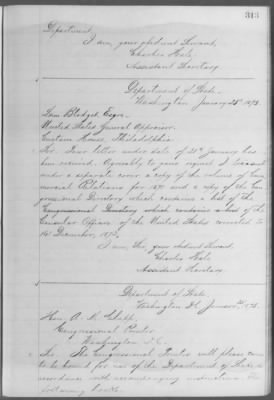 313
Department,
I am, your obedient Servant,
Charles Hale,
Assistant Secretary.
Department of State.
Washington January 25th 1873.
Sam Blodget, Esqre.
United States General Appraiser,
Custom House, Philadelphia
Sir: Your letter under date of 21st January has
been received. Agreeably to your request I transmit
under a separate cover a copy of the volume of Com-
mercial Relations for 1871 and a copy of the Con-
gressional Directory which contains a list of the
Consular Officers of the United States corrected to
1st December, 1872.
I am, Sir, your obedient Servant,
Charles Hale
Assistant Secretary.
Department of State
Washington, January 1873.
Hon. A. M. Clapp,
Congressional Printer
Washington D.C.
Sir: The Congressional Printer will please cause
to be bound for use of the Department of State, in
accordance with accompanying instructions the
following books.